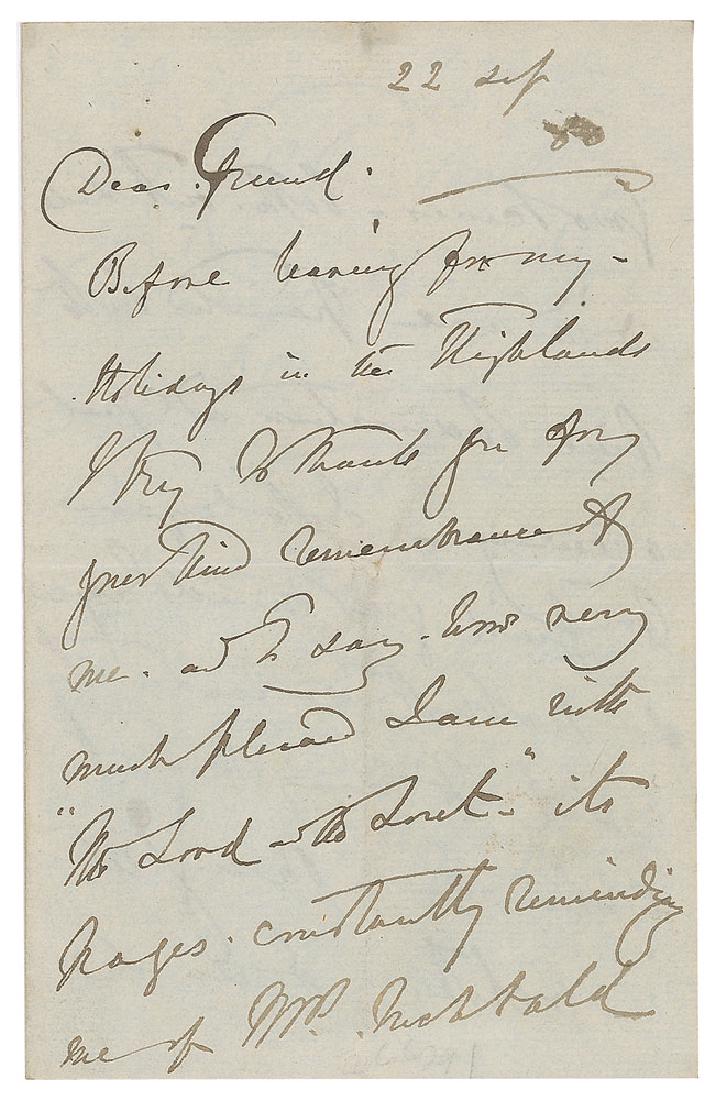 22 Sep
Dear Friend.
Before leaving for my -
Holidays in the Highlands
I try to thank you for
your kind remembrance of
me. and to say. how very
much pleased I am with
"The Lord and the" its
pages. constantly reminding
me of Mrs. Inchbald